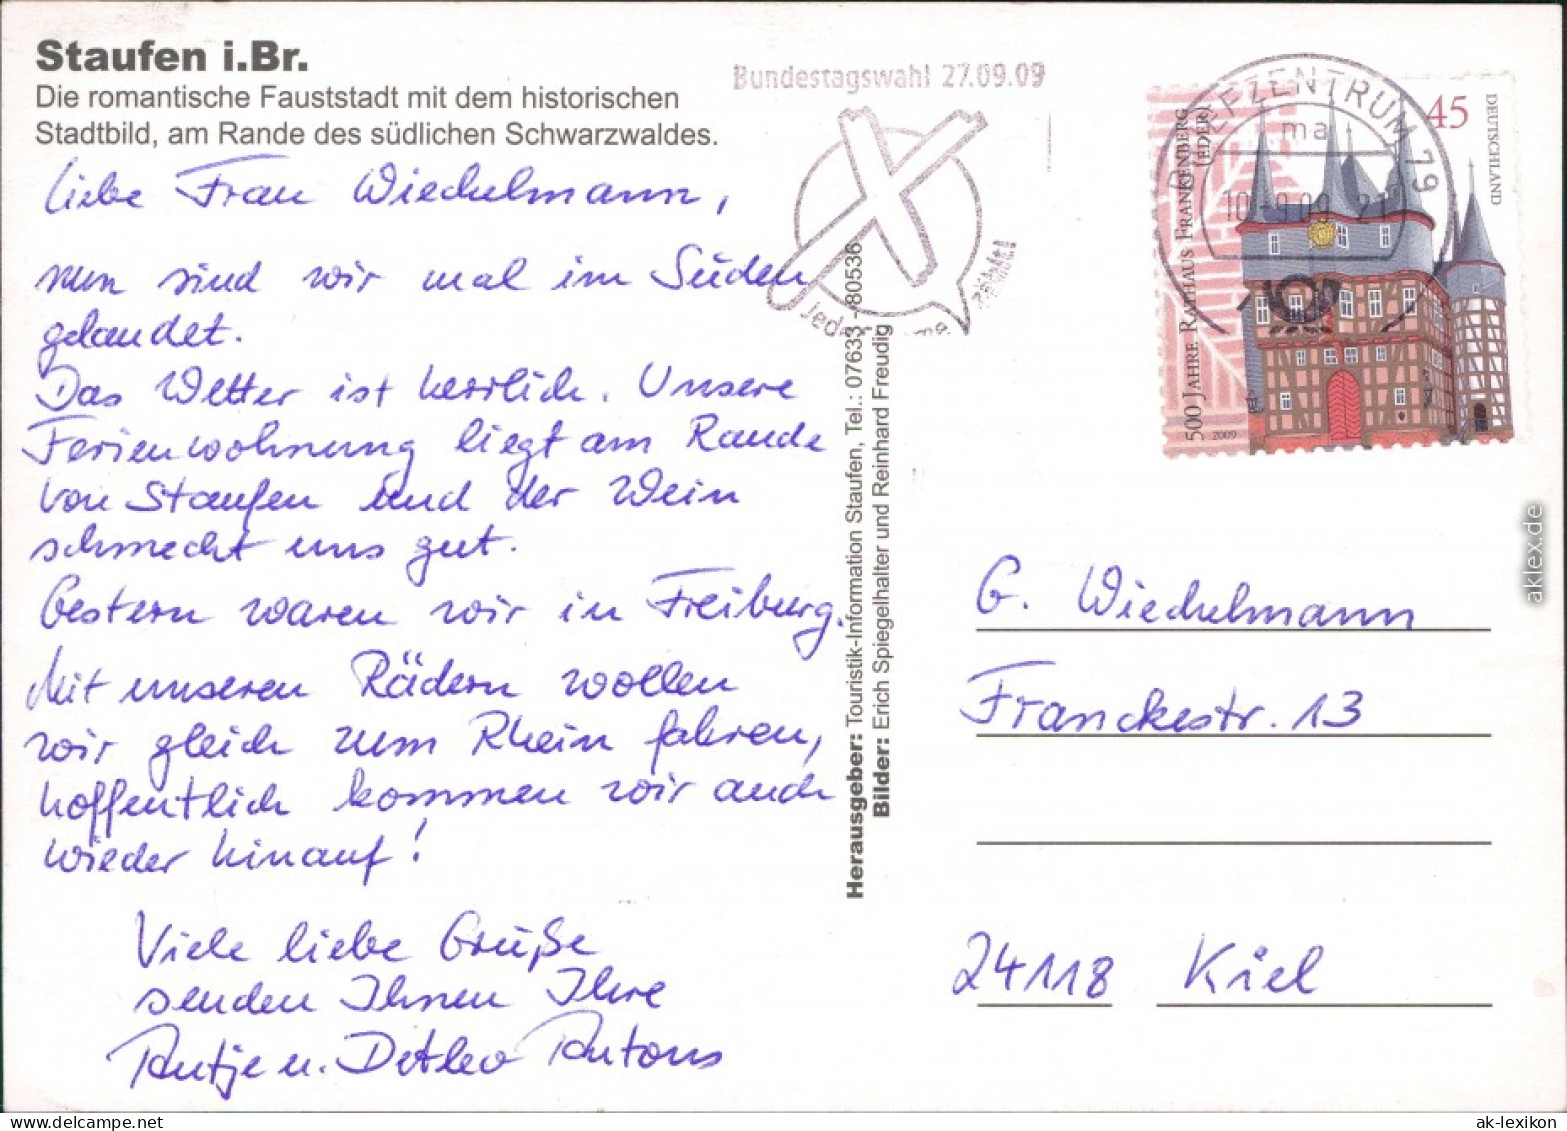 Staufen i.Br.
Die romantische Fauststadt mit dem historischen
Stadtbild, am Rande des südlichen Schwarzwaldes.
Liebe Frau Wiechelmann,
nun sind wir mal im Süden
gelandet.
Das Wetter ist herrlich. Unsere
Ferienwohnung liegt am Rande
von Staufen und der Wein
schmeckt uns gut.
Gestern waren wir in Freiburg.
Mit unseren Rädern wollen
wir gleich zum Rhein fahren,
hoffentlich kommen wir auch
wieder hinauf!
Viele liebe Grüße
senden Ihnen Ihre
Antje u. Detlev Antons
Herausgeber: Touristik-Information Staufen, Tel.: 07633 - 80536
Bilder: Erich Spiegelhalter und Reinhard Freudig
Bundestagswahl 27.09.09
Jede
me
zählt!
BRIEFZENTRUM 79
ma
500 JAHRE RATHAUS FRANKENBERG
(EDER)
2009
45
DEUTSCHLAND
G. Wiechelmann
Franckestr. 13
24118 Kiel
aklex.de
ak-lexikon